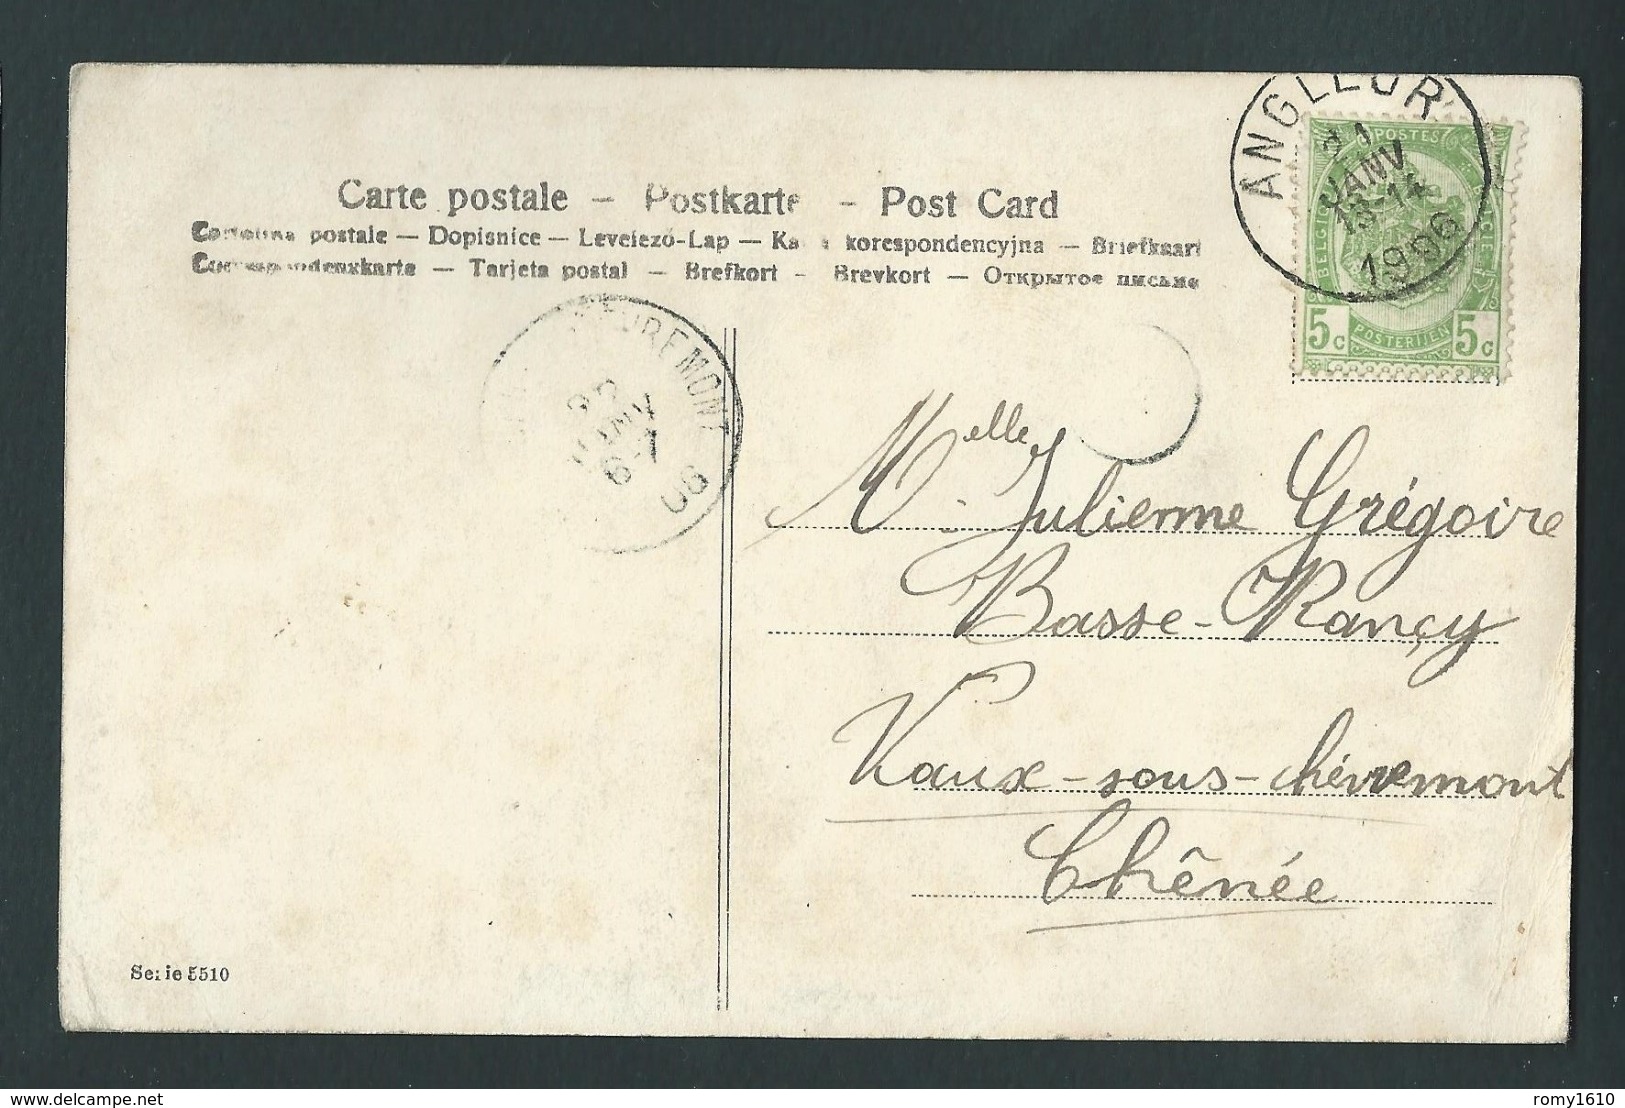 ANGLEUR
21
JANV
13-14
1906
POSTES
BELGIQUE
POSTERIJEN
5c 5c
Carte postale – Postkarte – Post Card
Cartolina postale — Dopisnice — Levelező-Lap — Ka korespondencyjna — Briefkaart
Correspondenzkarte — Tarjeta postal — Brefkort - Brevkort — Открытое письмо
EVREMONT
22
JANV
6-7
06
Melle Julienne Grégoire
Basse-Rançy
Vaux-sous-chèvremont
Chênée
Serie 5510
delcampe.net
romy1610